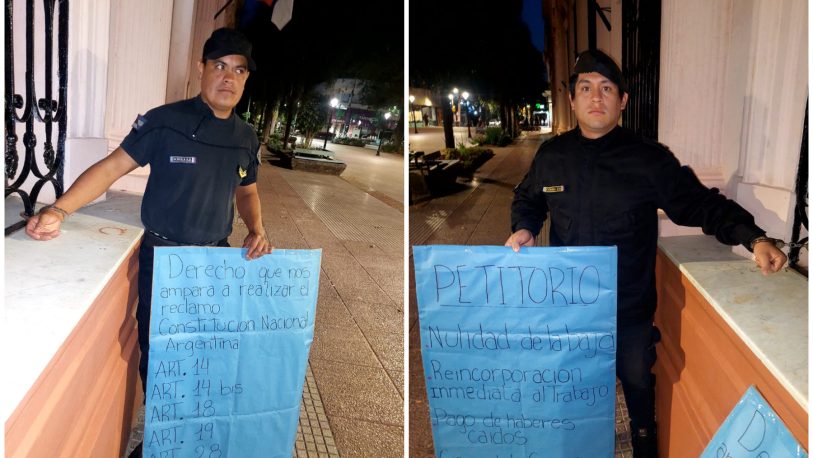 Derecho que nos
ampara a realizar el
reclamo.
Constitucion Nacional
Argentina
ART. 14
ART. 14 bis
ART. 18
ART. 19
ART. 28
PETITORIO
. Nulidad de la baja
. Reincorporacion
inmediata al Trabajo
. Pago de haberes
caidos